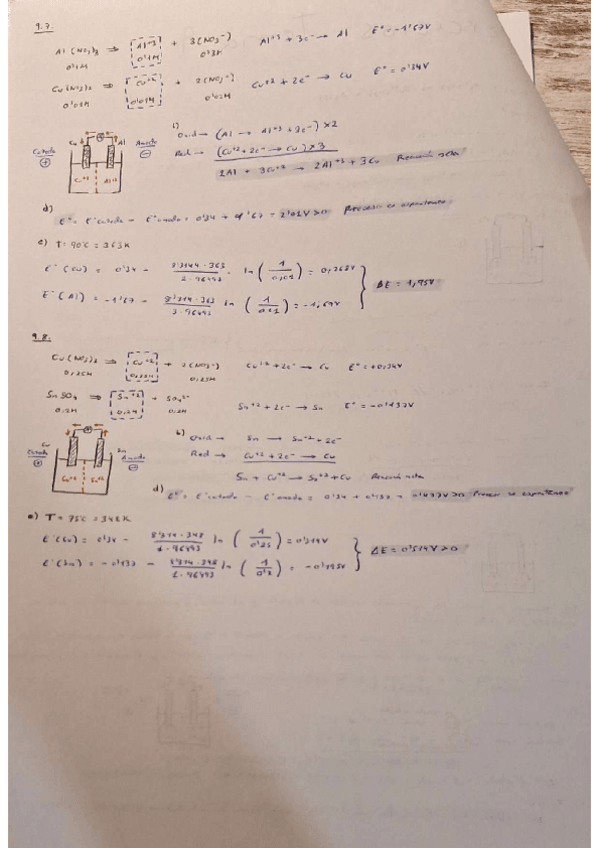 9.7.
Al(NO3)3 ⇒ Al+3 + 3(NO3-) Al+3 + 3e- → Al E°= -1'67V
0'1M 0'1M 0'3M
Cu(NO3)2 ⇒ Cu+2 + 2(NO3-) Cu+2 + 2e- → Cu E°= 0'34V
0'01M 0'01M 0'02M
Cu Al
Catodo Anodo
+ -
Cu+2 Al+3
Oxid → (Al → Al+3 + 3e-) x2
Red → (Cu+2 + 2e- → Cu) x3
2Al + 3Cu+2 → 2Al+3 + 3Cu Reacción neta
d)
E°= E°catodo - E°anodo = 0'34 + 1'67 = 2'01V>0
e) T= 90°C = 363K
E°(Cu) = 0'34 - 8'314·363 / 2·96493 · ln (1 / 0,01)
E°(Al) = -1'67 - 8'314·363 / 3·96493 ln (1 / 0'1) = -1,69V
ΔE = 1,95V
9.8.
Cu(NO3)2 ⇒ Cu+2 + 2(NO3-) Cu+2 + 2e- → Cu E°= +0,34V
0,25M 0,25M 0,25M
SnSO4 ⇒ Sn+2 + SO4 2- Sn+2 + 2e- → Sn E°= -0'137V
0,2M 0,2M 0,2M
Cu Sn
Catodo Anodo
+ -
Cu+2 Sn+2
b) Oxid → Sn → Sn+2 + 2e-
Red → Cu+2 + 2e- → Cu
Sn + Cu+2 → Sn+2 + Cu Reacción neta
d) E°= E°catodo - E°anodo = 0'34 + 0'137 = 0'477V>0 Proceso es espontaneo
e) T= 75°C = 348K
E°(Cu) = 0'34 - 8'314·348 / 2·96493 ln (1 / 0'25)
E°(Sn) = -0'137 - 8'314·348 / 2·96493 ln (1 / 0'2)
ΔE = 0'514V>0